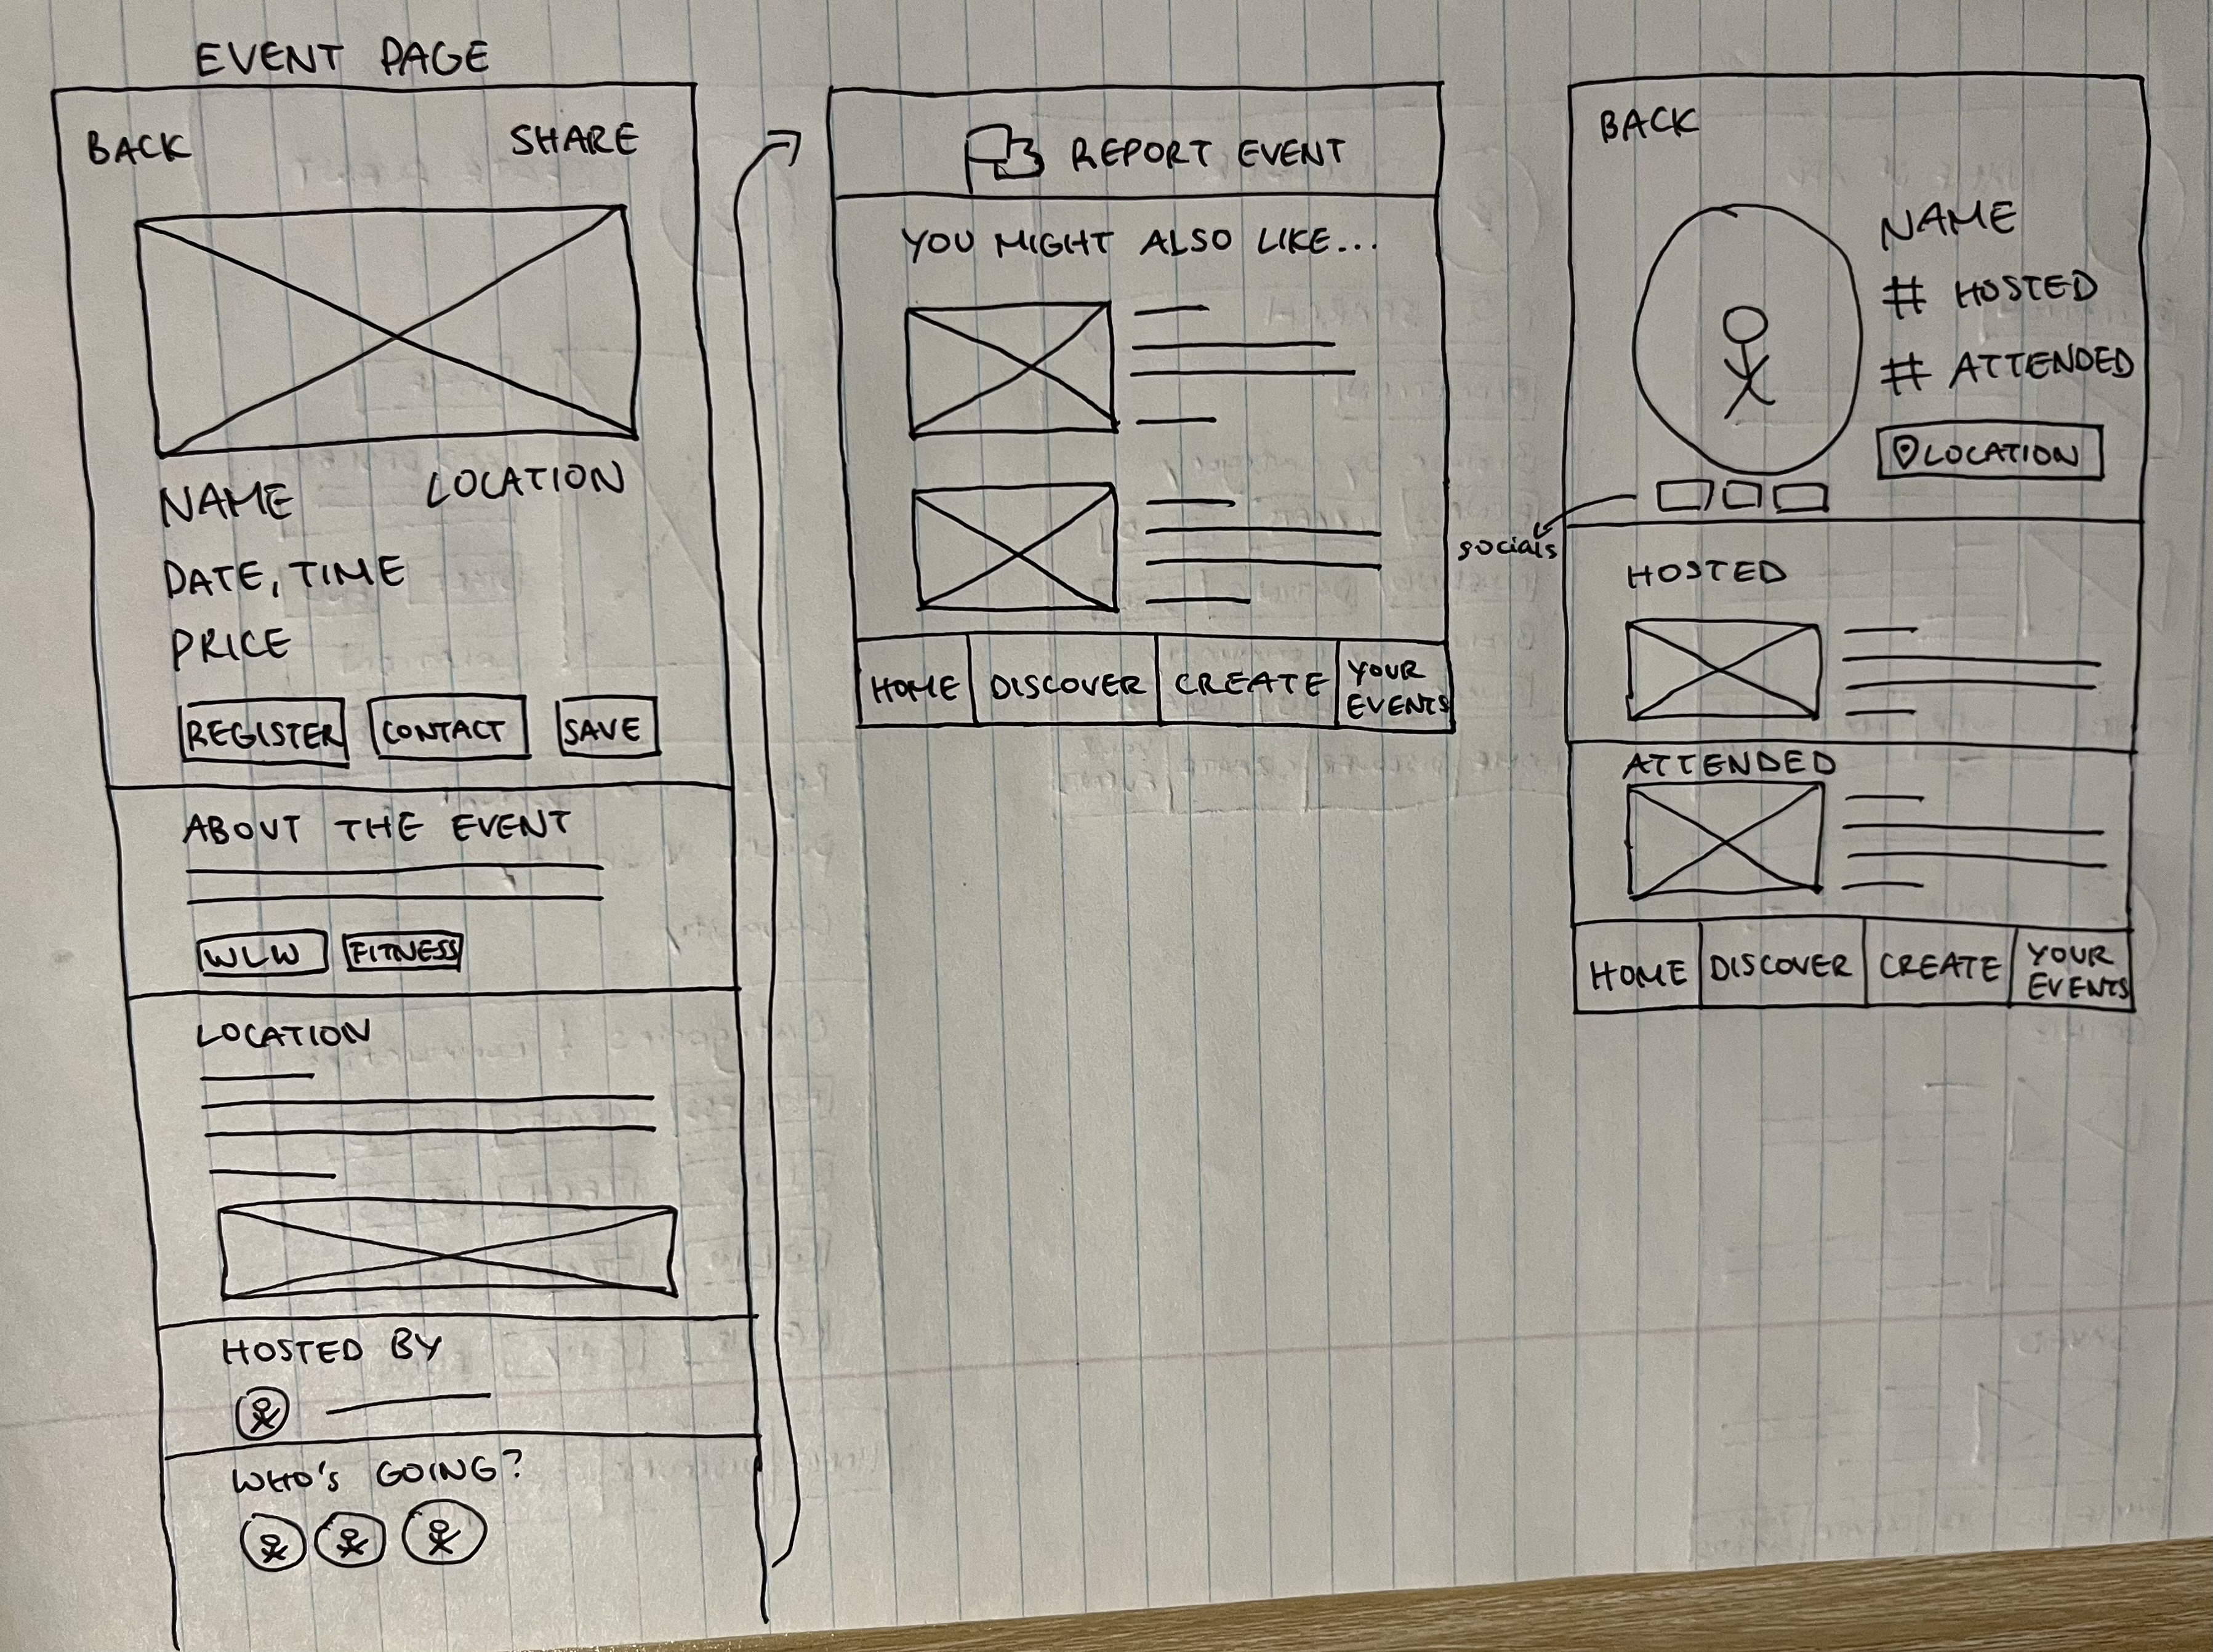 EVENT PAGE
BACK SHARE
NAME LOCATION
DATE, TIME
PRICE
REGISTER CONTACT SAVE
ABOUT THE EVENT
WLW FITNESS
LOCATION
HOSTED BY
WHO'S GOING?
REPORT EVENT
YOU MIGHT ALSO LIKE...
HOME DISCOVER CREATE YOUR
EVENTS
BACK
NAME
# HOSTED
# ATTENDED
LOCATION
socials
HOSTED
ATTENDED
HOME DISCOVER CREATE YOUR
EVENTS